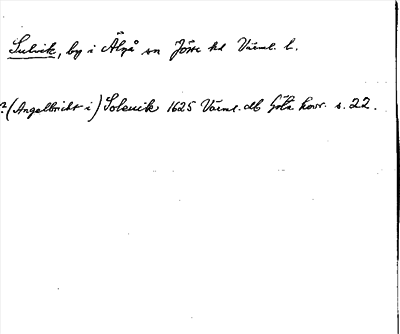 Sulvik, by i Älgå sn Jösse hd Värml. l.
?(Angelbricht i) Solevik 1625 Värml. db Göta hovr. s. 22.